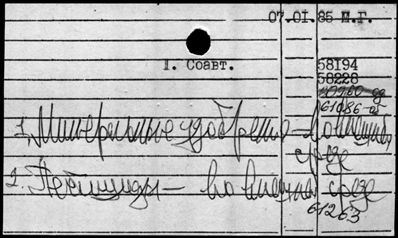 07.01.85 М.Г.
1. Соавт.
58194
58228
61086-а
1. Минеральные удобрения — во внешней
среде
2. Пестициды — во внешней среде
61263